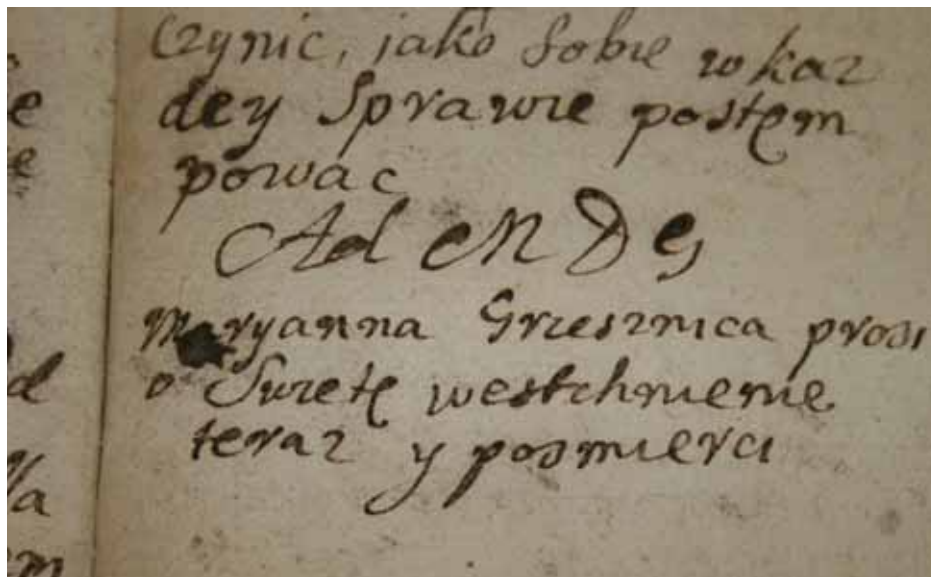 czynic, jako sobie w kaz
dey sprawie postęm
powac
Ad M D G
Maryanna Grzesznica prosi
o Swietę westchnienie
teraz y posmierci